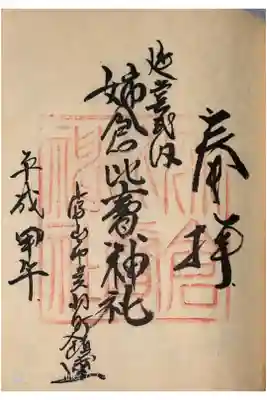 奉拝
延喜式内
姉倉比賣神社
富山市呉羽町鎮座
平成甲午